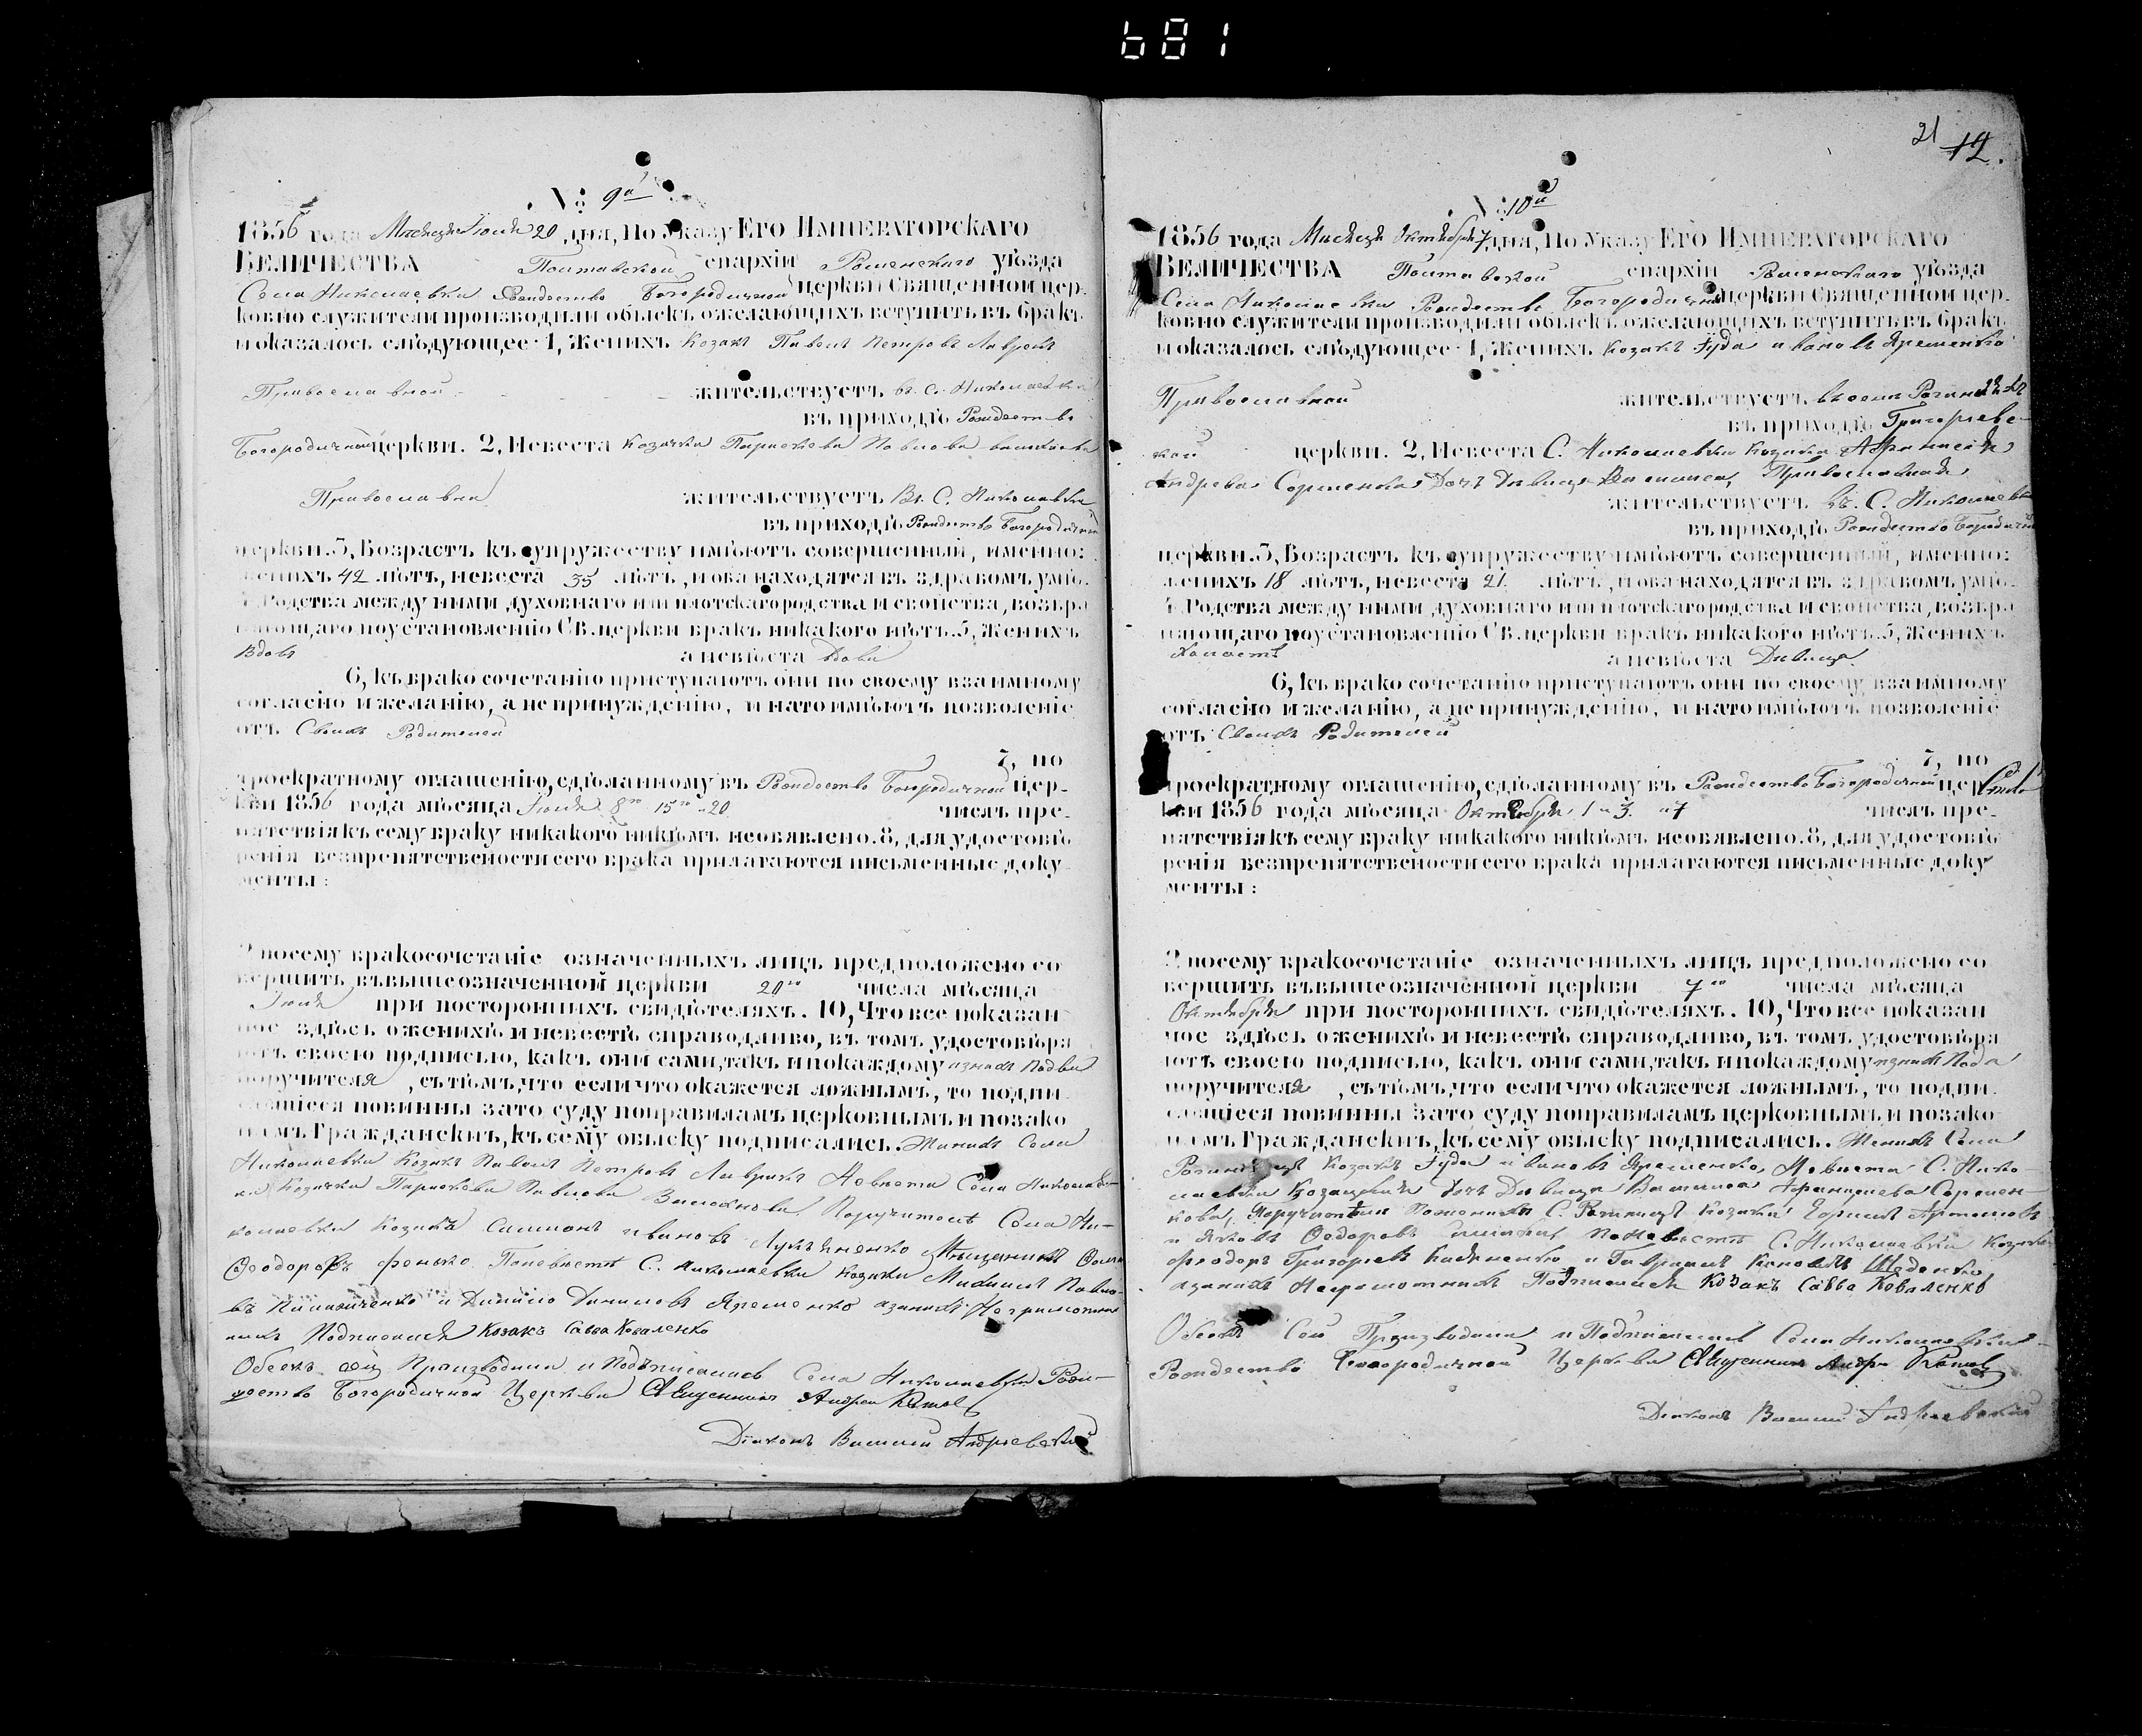 681
№ 9й
1856 года Мѣсяца Іюля 20 дня, По Указу Его Императорскаго
Величества Полтавской епархіи Роменскаго уѣзда
Села Николаевки Рождество Богородичной церкви Священной цер-
ковно служители производили обыскъ ожелающихъ вступить въ бракъ
и оказалось слѣдующее 1, Женихъ Козакъ Павелъ Петровъ
Православной жительствуетъ въ с. Николаевки
въ приходѣ Рождество
Богородичной церкви. 2, Невеста Козачка Параскева Павлова
Православна жительствуетъ Въ С. Николаевки
въ приходѣ Рождество Богородичной
церкви. 3, Возрастъ къ супружеству имѣютъ совершенный, именно:
женихъ 42 лѣтъ, невеста 35 лѣтъ, и оба находятся въ здравомъ умѣ.
4, Родства между ними духовнаго или плотскаго родства и свойства, возбра
няющаго по установленію Св. церкви бракъ никакого нѣтъ. 5, Женихъ
Вдовъ а невѣста Вдова
6, къ брако сочетанію приступаютъ они по своему взаимному
согласію и желанію, а не принужденію, и на то имѣютъ позволеніе
отъ Своихъ Родителей
7, по
троекратному оглашенію, сдѣланному въ Рождество Богородичной цер-
кви 1856 года мѣсяца Іюля 8го 15го и 20 числъ пре-
пятствія къ сему браку никакого никѣмъ необявлено. 8, для удостовѣ
ренія безпрепятствености сего брака прилагаются письменные доку
менты:
9 посему бракосочетаніе означенныхъ лицъ предположено со
вершить въ вышеозначенной церкви 20го числа мѣсяца
Іюля при постороннихъ свидѣтеляхъ. 10, Что все показан
ное здѣсь о женихѣ и невестѣ справодливо, въ томъ удостовѣря
ютъ своею подписью, какъ они сами, такъ и по каждому изнихъ Подва
поручителя, сътѣмъ, что если что окажется ложнымъ, то подпи
савшіеся повинны за то суду по правиламъ церковнымъ и по зако
намъ Граждански, къ сему обыску подписались. Жинихъ Села
Николаевки Козакъ Павелъ Петровъ Невеста Села Николаев-
ки Козачка Параскева Павлова Поручители Села Ни-
колаевки Козакъ Симионъ Ивановъ Лукъяненко Мещанинъ
Ѳеодоровъ Поневестѣ С. Николаевки Козаки Михаилъ Павло-
въ и Данило Даниловъ Яременко азанихъ Неграмотных
Подписался Козакъ Савва Коваленко
Обыскъ сей Производили и Подписались Села Николаевки Рож-
дество Богородичной Церкви Священникъ Андрей
Діаконъ Василій Андріевскій
21 12.
№ 10й
1856 года Мѣсяца Октября 7 дня, По Указу Его Императорскаго
Величества Полтавской епархіи Роменскаго уѣзда
Села Николаевки Рождество Богородичной церкви Священной цер-
ковно служители производили обыскъ ожелающихъ вступить въ бракъ
и оказалось слѣдующее 1, Женихъ Козакъ Іуда Ивановъ Яременко
Православной жительствуетъ въ селѣ
въ приходѣ Григориевс-
кой церкви. 2, Невеста С. Николаевки Козака Афанасія
Андреева Дочь Дѣвица Василиса, Православная
жительствуетъ въ С. Николаевки
въ приходѣ Рождество
церкви. 3, Возрастъ къ супружеству имѣютъ совершенный, именно:
женихъ 18 лѣтъ, невеста 21 лѣтъ, и оба находятся въ здравомъ умѣ.
4, Родства между ними духовнаго или плотскаго родства и свойства, возбра
няющаго по установленію Св. церкви бракъ никакого нѣтъ. 5, Женихъ
Холостъ а невѣста Дѣвица
6, къ брако сочетанію приступаютъ они по своему взаимному
согласію и желанію, а не принужденію, и на то имѣютъ позволеніе
отъ Своихъ Родителей
7, по
троекратному оглашенію, сдѣланному въ Рождество Богородичной цер
кви 1856 года мѣсяца Октября 1 и 3. и 7 числъ пре-
пятствія къ сему браку никакого никѣмъ необявлено. 8, для удостовѣ
ренія безпрепятствености сего брака прилагаются письменные доку
менты:
9 посему бракосочетаніе означенныхъ лицъ предположено со
вершить въ вышеозначенной церкви 7го числа мѣсяца
Октября при постороннихъ свидѣтеляхъ. 10, Что все показан
ное здѣсь о женихѣ и невестѣ справодливо, въ томъ удостовѣря
ютъ своею подписью, какъ они сами, такъ и по каждому изнихъ Подва
поручителя, сътѣмъ, что если что окажется ложнымъ, то подпи
савшіеся повинны за то суду по правиламъ церковнымъ и по зако
намъ Граждански, къ сему обыску подписались. Женихъ Села
Козакъ Іуда Ивановъ Яременко, Невеста С. Нико-
лаевки Дочь Дѣвица Василиса
Поручители Поженихѣ С. Козаки
и Яковъ Ѳедоровъ Поневестѣ С. Николаевки Козаки
Феодоръ Григорьевъ и Гавріилъ
азанихъ Неграмотныхъ Подписался Козакъ Савва Коваленко
Обыскъ Сей Производили и Подписались Села Николаевки
Рождество Богородичной Церкви Священникъ Андрей
Діаконъ Василий Андриевский